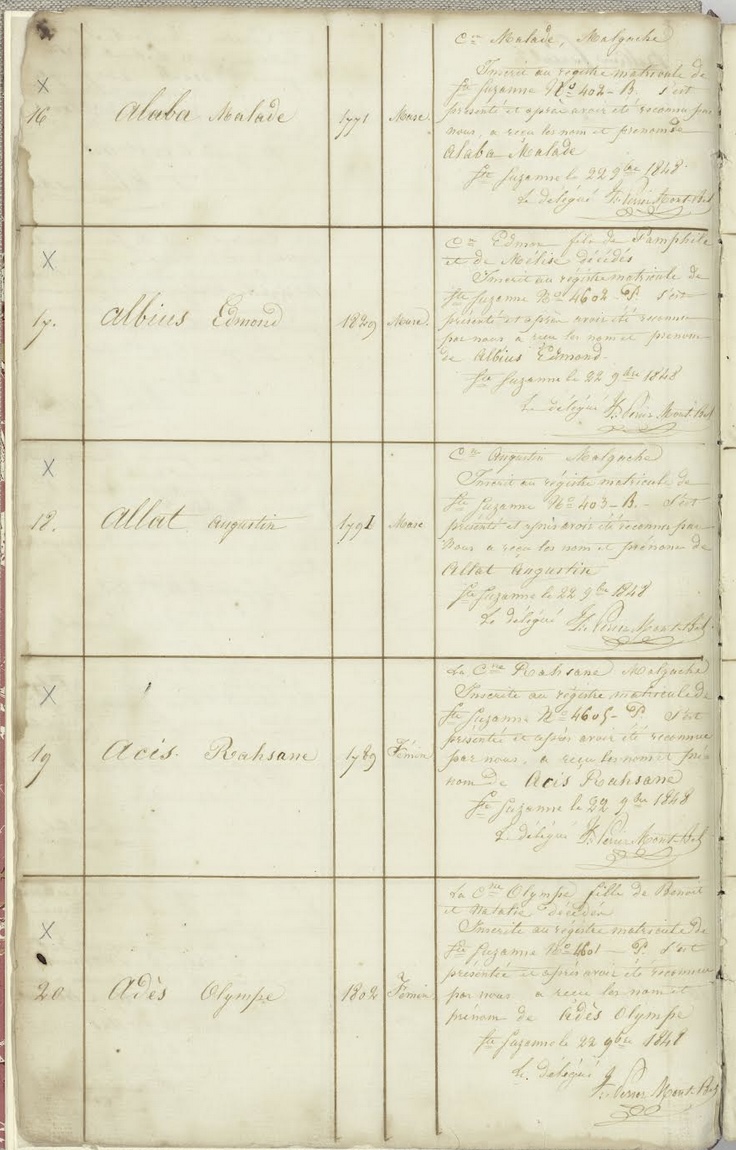 16
Alaba Malade
1771
Masc
Cen Malade, Malgache
Inscrit au régistre matricule de
Ste Suzanne No 402-B. S'est
présenté et après avoir été reconnu par
nous, a reçu les nom et prénom de
Alaba Malade
Ste Suzanne le 22 9bre 1848
Le délégué
17.
Albius Edmond
1829
Masc.
Cen Edmon fils de Pamphile
et de Mélise décédés
Inscrit au régistre matricule de
Ste Suzanne No 4602-P. S'est
présenté et après avoir été reconnu
par nous a reçu les nom et prénom
de Albius Edmond.
Ste Suzanne le 22 9bre 1848
Le délégué
18.
Allat Augustin
1791
Masc
Cen Augustin Malgache
Inscrit au régistre matricule de
Ste Suzanne No 403-B.- S'est
présenté et après avoir été reconnu par
nous a reçu les nom et prénom de
Allat Augustin
Ste Suzanne le 22 9bre 1848
Le délégué
19
Acis Rahsane
1789
Fémin
La Cne Rahsane Malgache
Inscrite au régistre matricule de
Ste Suzanne No 4605-P. S'est
présentée et après avoir été reconnue
par nous, a reçu les nom et pré
nom de Acis Rahsane
Ste Suzanne le 22 9bre 1848
Le délégué
20
Adès Olympe
1802
Fémin
La Cne Olympe fille de Benoit
et Natalie décédés
Inscrite au régistre matricule de
Ste Suzanne No 4601-P. S'est
présentée et après avoir été reconnue
par nous a reçu les nom et
prénom de Adès Olympe
Ste Suzanne le 22 9bre 1848
Le délégué